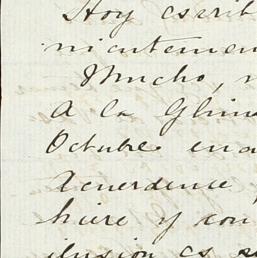 Hoy escrib
nientemen
Mucho,
A la Glim
Octubre en
Acuerdense,
hiere y con
ilusion es s